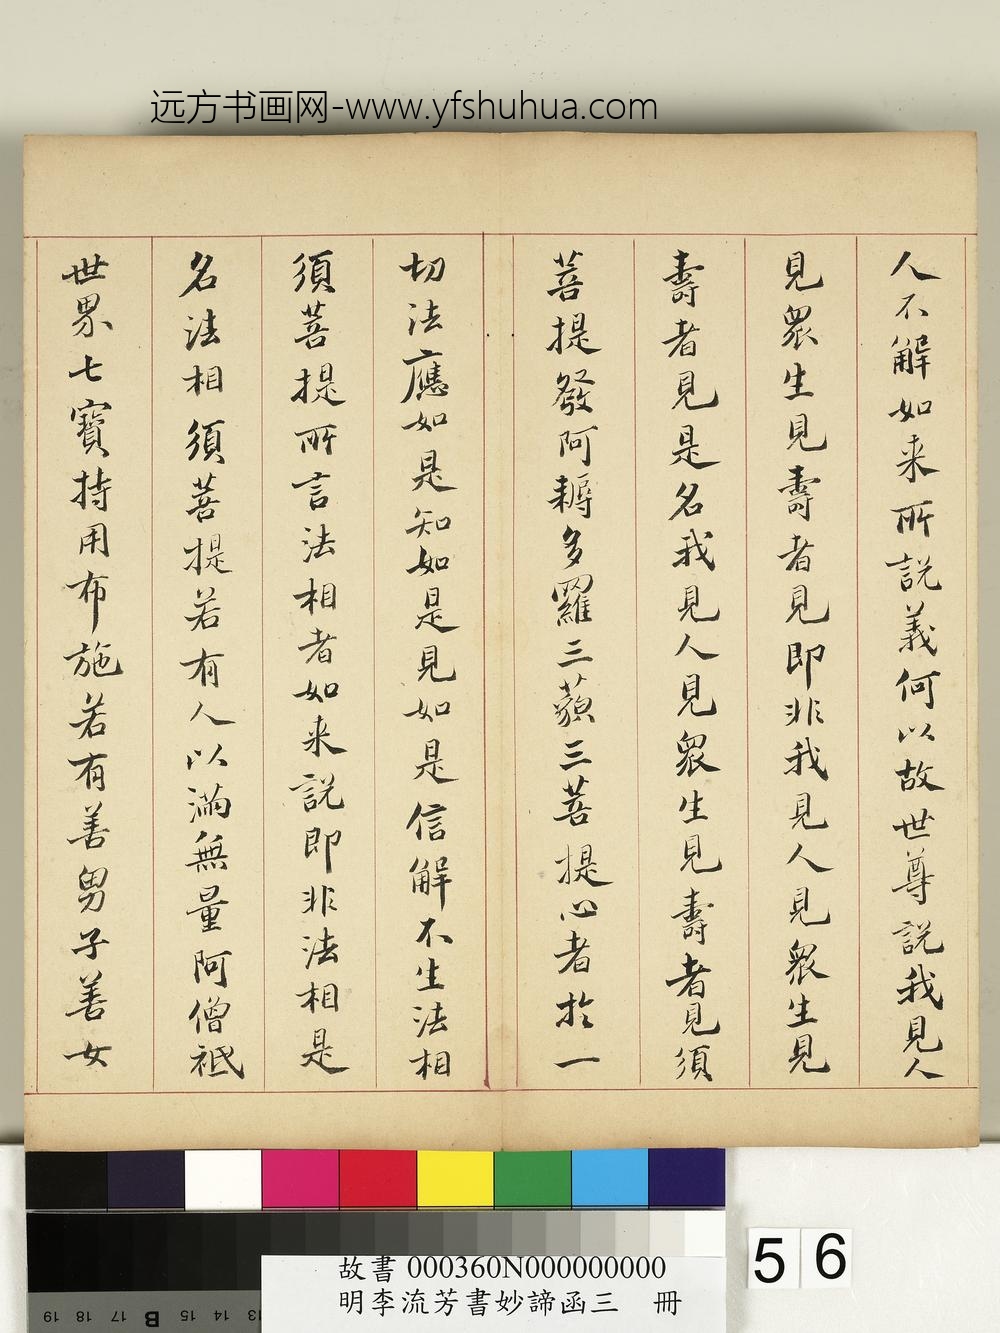 远方书画网-www.yfshuhua.com
人不解如来所説義何以故世尊説我見人
見眾生見壽者見即非我見人見眾生見
壽者見是名我見人見眾生見壽者見須
菩提發阿耨多羅三藐三菩提心者於一
切法應如是知如是見如是信解不生法相
須菩提所言法相者如来説即非法相是
名法相須菩提若有人以滿無量阿僧祇
世界七寶持用布施若有善男子善女
56
故書000360N000000000
明李流芳書妙諦函三 冊
19 18 17 B 15 14 13 12